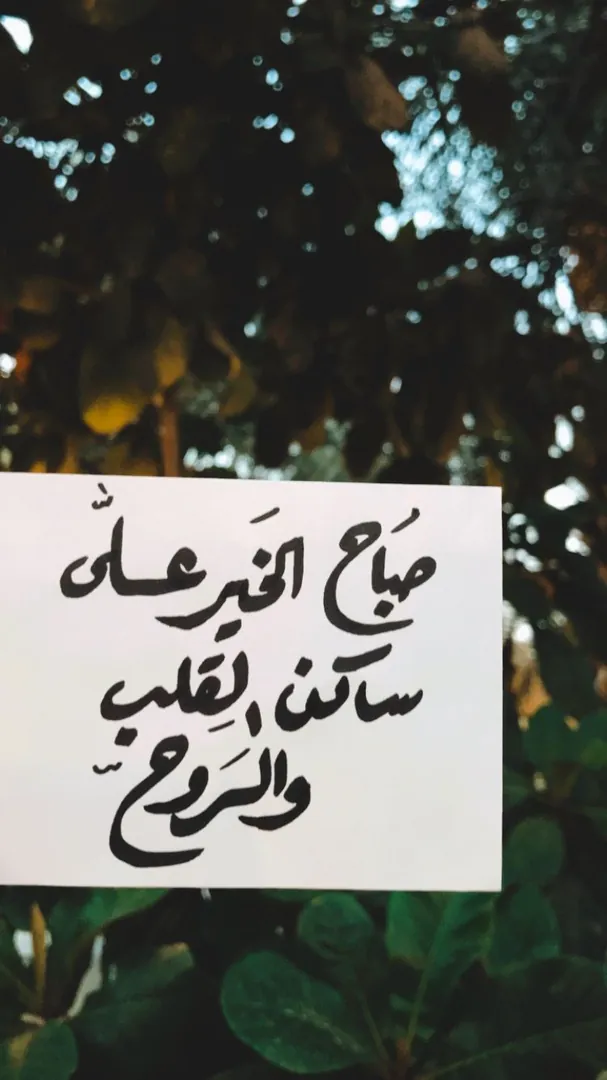 صَباح الخَير عــلىّ
ساكن القَلب
والـرَوح